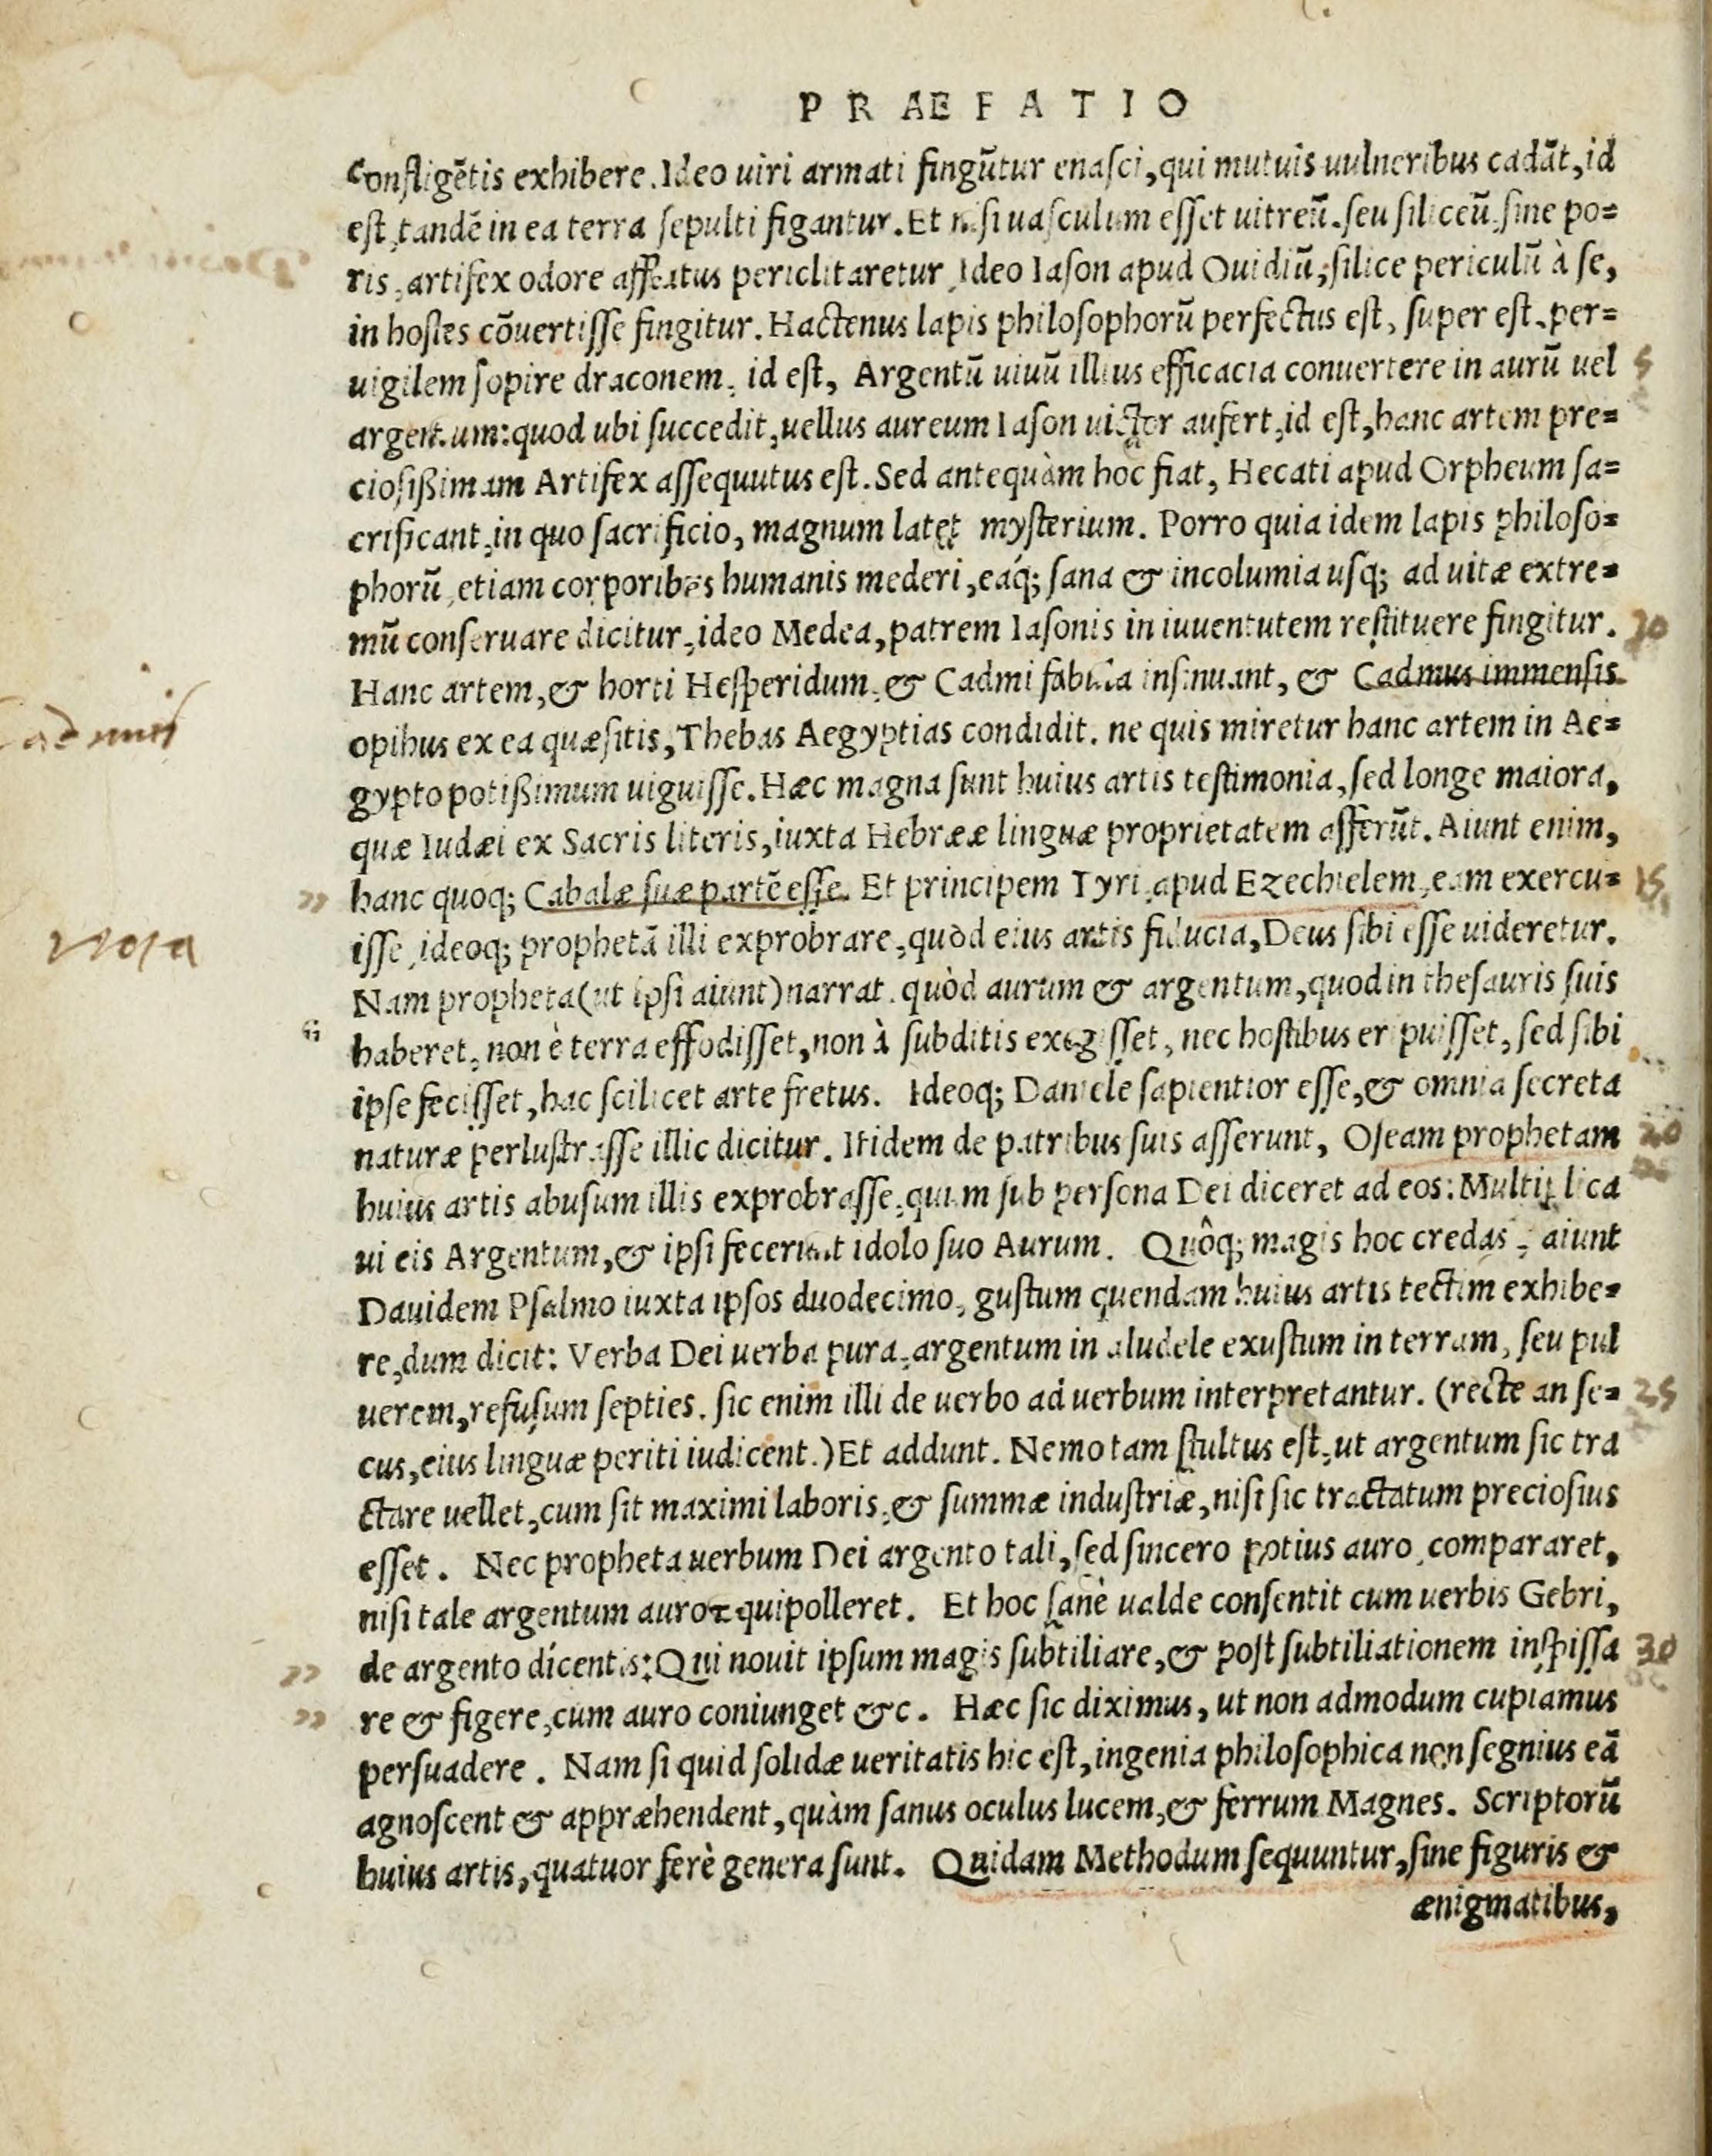 PRAEFATIO
Confligẽtis exhibere. Ideo uiri armati fingũtur enasci, qui mutuis uulneribus cadãt, id
est, tandẽ in ea terra sepulti figantur. Et nisi uasculum esset uitreũ, seu siliceũ, sine po=
ris, artifex odore affeatus periclitaretur, Ideo Iason apud Ouidiũ, silice periculũ à se,
in hostes cõuertisse fingitur. Hactenus lapis philosophorũ perfectus est, super est, per=
uigilem sopire draconem, id est, Argentũ uiuũ illius efficacia conuertere in aurũ uel
5
argentum: quod ubi succedit, uellus aureum Iason uictor aufert, id est, hanc artem pre=
ciosißimam Artifex assequutus est. Sed antequàm hoc fiat, Hecati apud Orpheum sa=
crificant, in quo sacrificio, magnum latet mysterium. Porro quia idem lapis philoso=
phorũ, etiam corporibus humanis mederi, eáq; sana & incolumia usq; ad uitæ extre=
mũ conseruare dicitur, ideo Medea, patrem Iasonis in iuuentutem restituere fingitur.
10
Hanc artem, & horti Hesperidum, & Cadmi fabula insinuant, & Cadmus immensis
Cadmus
opibus ex ea quæsitis, Thebas Aegyptias condidit. ne quis miretur hanc artem in Ae=
gypto potißimum uiguisse. Hæc magna sunt huius artis testimonia, sed longe maiora,
quæ Iudæi ex Sacris literis, iuxta Hebrææ linguæ proprietatem afferũt. Aiunt enim,
" hanc quoq; Cabalæ suæ partẽ esse. Et principem Tyri, apud Ezechielem, eam exercu=
15
isse, ideoq; prophetã illi exprobrare, quòd eius artis fiducia, Deus sibi esse uideretur.
Nota
Nam propheta (ut ipsi aiunt) narrat, quòd aurum & argentum, quod in thesauris suis
haberet, non è terra effodisset, non à subditis exegisset, nec hostibus eripuisset, sed sibi
ipse fecisset, hac scilicet arte fretus. Ideoq; Daniele sapientior esse, & omnia secreta
naturæ perlustrasse illic dicitur. Itidem de patribus suis asserunt, Oseam prophetam
20
huius artis abusum illis exprobrasse, quum sub persona Dei diceret ad eos: Multiplica
ui eis Argentum, & ipsi fecerunt idolo suo Aurum. Quôq; magis hoc credas, aiunt
Dauidem Psalmo iuxta ipsos duodecimo, gustum quendam huius artis tectim exhibe=
re, dum dicit: Verba Dei uerba pura, argentum in aludele exustum in terram, seu pul
uerem, refusum septies. sic enim illi de uerbo ad uerbum interpretantur. (recte an se=
25
cus, eius linguæ periti iudicent.) Et addunt. Nemo tam stultus est, ut argentum sic tra
ctare uellet, cum sit maximi laboris, & summæ industriæ, nisi sic tractatum preciosius
esset. Nec propheta uerbum Dei argento tali, sed sincero potius auro, compararet,
nisi tale argentum auro æquipolleret. Et hoc sanè ualde consentit cum uerbis Gebri,
" de argento dicentis: Qui nouit ipsum magis subtiliare, & post subtiliationem inspissa
30
" re & figere, cum auro coniunget &c. Hæc sic diximus, ut non admodum cupiamus
persuadere. Nam si quid solidæ ueritatis hic est, ingenia philosophica non segnius eã
agnoscent & appræhendent, quàm sanus oculus lucem, & ferrum Magnes. Scriptorũ
huius artis, quatuor ferè genera sunt. Quidam Methodum sequuntur, sine figuris &
ænigmatibus,